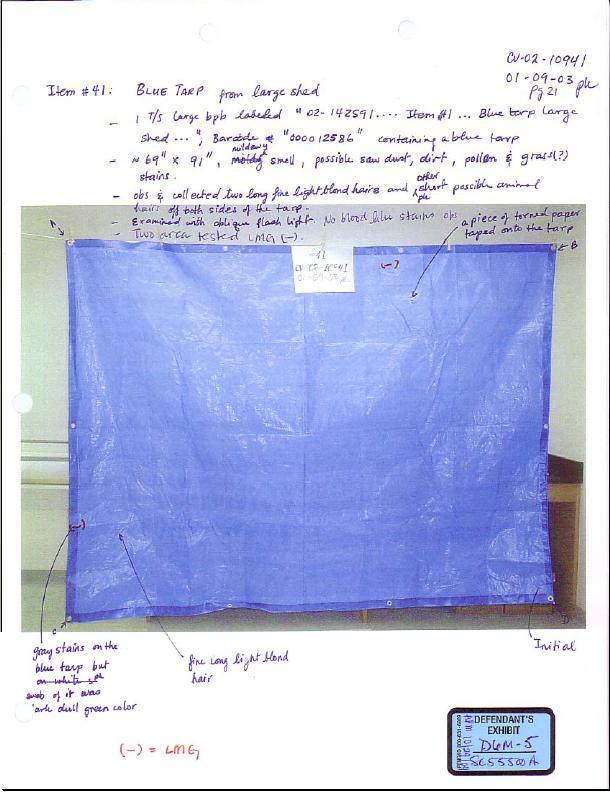 CV-02-10941
01-09-03 pk
Pg 21
Item #41: BLUE TARP from large shed
- 1 T/S Large bpb labeled "02-142591.... Item #1 ... Blue tarp Large
shed ...", Barcode # "000012586" containing a blue tarp
- ≈ 69" x 91", mildewy smell, possible saw dust, dirt, pollen & grass(?)
stains.
- obs & collected two long fine light blond hairs and other short possible animal
pk
hairs off both sides of the tarp.
- Examined with oblique flash light. No blood like stains obs
- Two area tested LMG (-).
a piece of torned paper
taped onto the tarp
A
B
#41
CV-02-10941
01-09-03 pk
(-)
(-)
C
D
gray stains on the
blue tarp but
swab of it was
dark dull green color
fine long light blond
hair
Initial
(-) = LMG
DEFENDANT'S
EXHIBIT
D6M-5
SC55500A